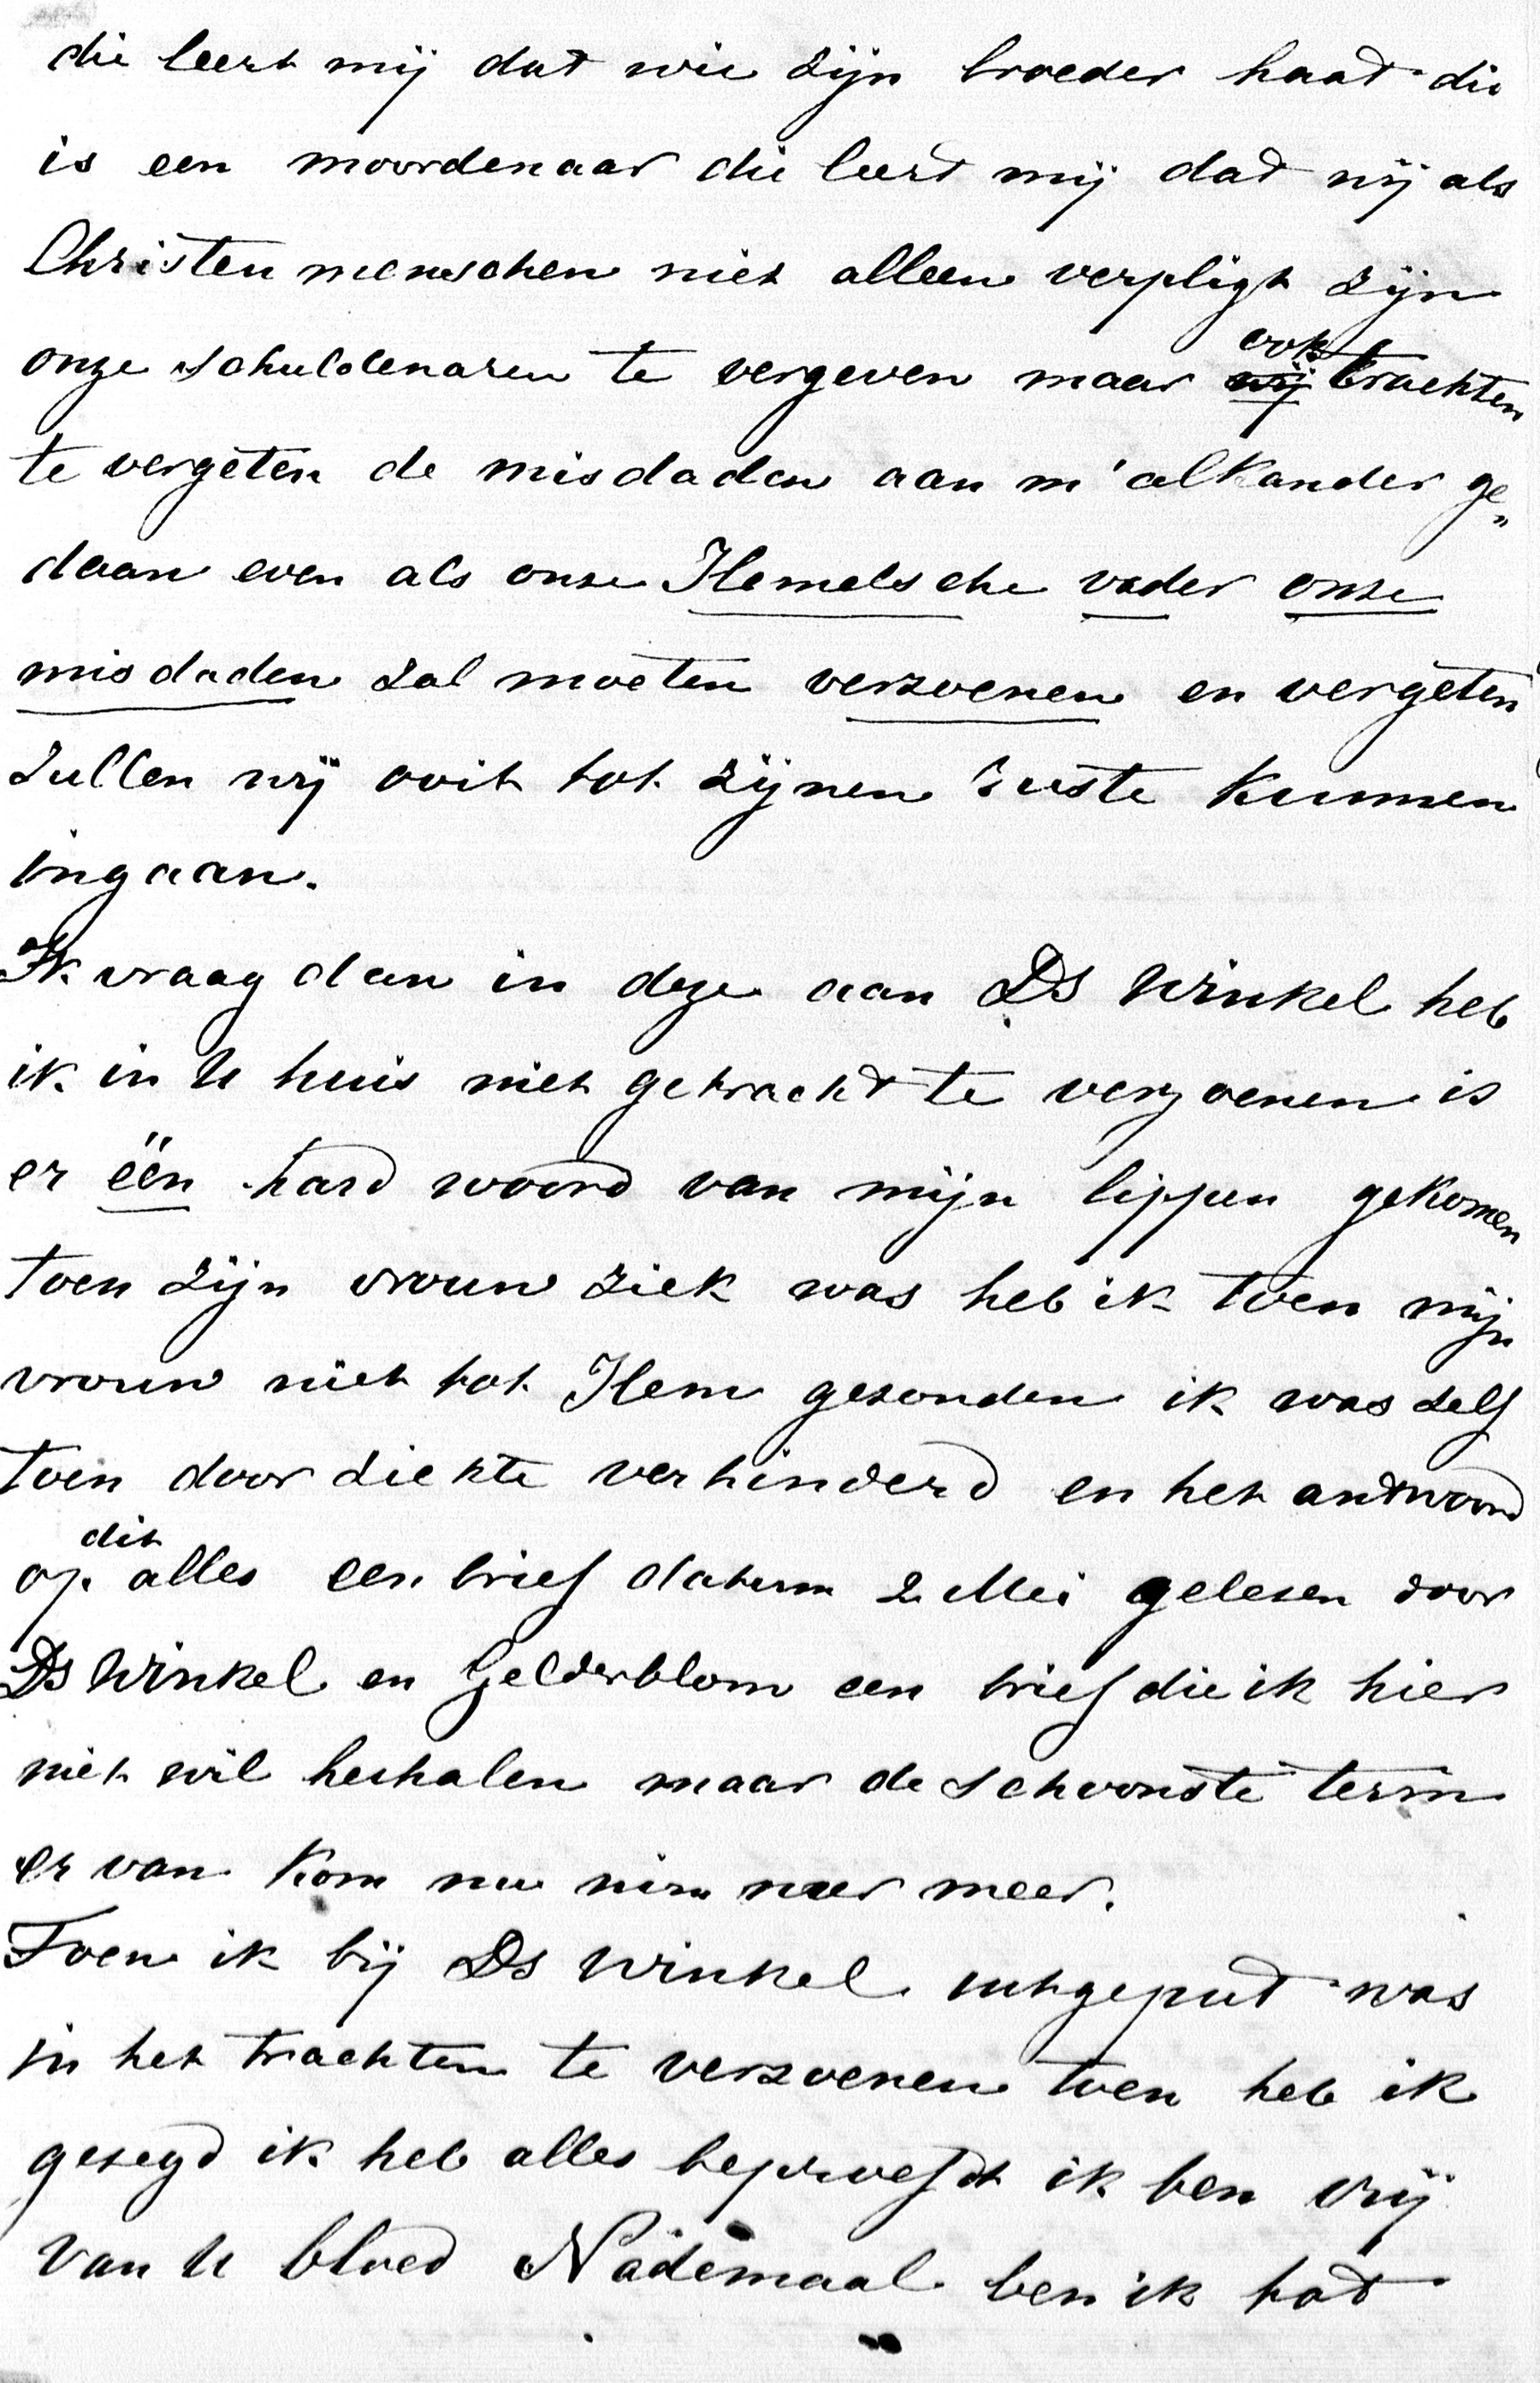 die leert mij dat wie zijn broeder haat die
is een moordenaar die leert mij dat wij als
Christen menschen niet alleen verpligt zijn
onze schuldenaren te vergeven maar ~~wij~~ ook trachten
te vergeten de misdaden aan m'alkander ge„
daan even als onze Hemelsche vader onze
misdaden zal moeten verzoenen en vergeten
zullen wij ooit tot zijnen ruste kunnen
ingaan.
Ik vraag dan in deze aan Ds Winkel heb
ik in U huis niet getracht te verzoenen is
er één hard woord van mijn lippen gekomen
toen zijn vrouw ziek was heb ik toen mijn
vrouw niet tot Hem gezonden ik was zelf
toen door ziekte verhinderd en het antwoord
op dit alles een brief datum 2 Mei gelezen door
Ds Winkel en Gelderblom een brief die ik hier
niet wil herhalen maar de schoonste term
er van Kom nu nimmer meer.
Toen ik bij Ds Winkel uitgeput was
in het trachten te verzoenen toen heb ik
gezegd ik heb alles beproefdt ik ben vrij
van U bloed Nademaal ben ik tot